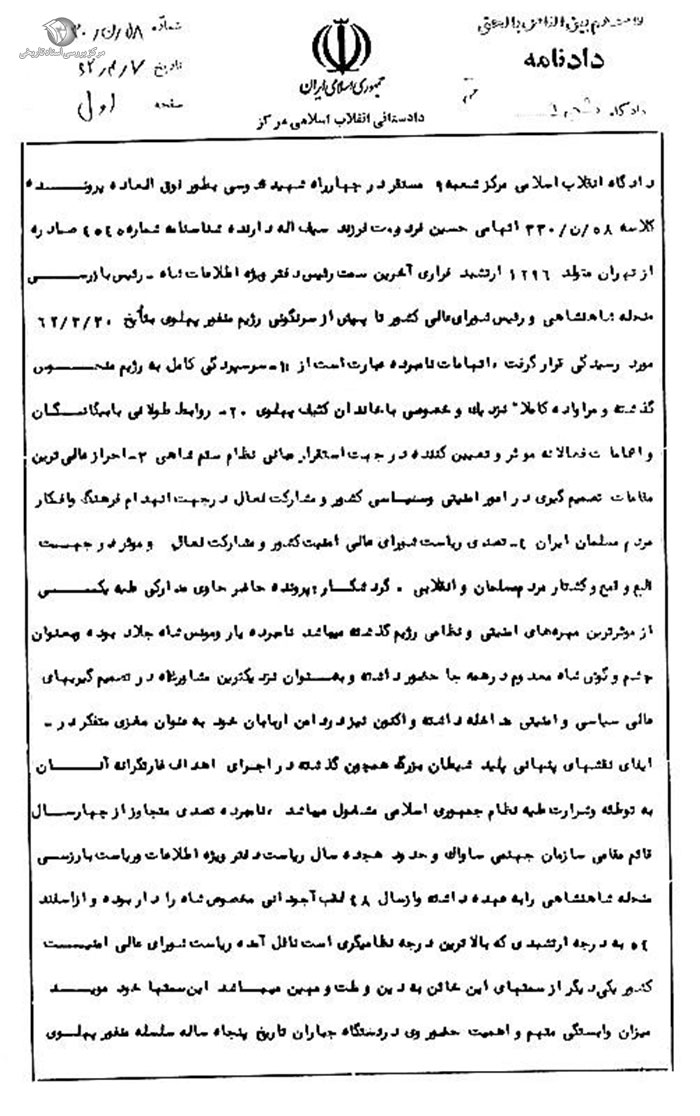 و منهم من ینقض الناس بالحق
دادنامه
دادگاه
جمهوری اسلامی ایران
دادستانی انقلاب اسلامی مرکز
شماره ۳۰/ن/۵۸
تاریخ ۶۲/۴/۷
صفحه اول
مرکز بررسی اسناد تاریخی
دادگاه انقلاب اسلامی مرکز شعبه ۹ مستقر در چهارراه شهید قدوسی بطور فوق العاده پرونده
کلاسه ۵۸/ن/۳۳۰ اتهامی حسین فردوست فرزند سیف اله دارنده شناسنامه شماره ۴۵۴۵ صادره
از تهران متولد ۱۲۹۶ ارتشبد فراری آخرین سمت رئیس دفتر ویژه اطلاعات شاه - رئیس بازرسی
منحله شاهنشاهی و رئیس شورای عالی کشور تا پیش از سرنگونی رژیم منفور پهلوی بتأریخ ۶۲/۳/۳۰
مورد رسیدگی قرار گرفت ، اتهامات نامبرده عبارت است از ۱- سرسپردگی کامل به رژیم منحوس
گذشته و مراوده کاملا" نزدیک و خصوصی با خاندان کثیف پهلوی ۲۰- روابط طولانی با بیگانگان
و اقدامات فعالانه موثر و تعیین کننده در جهت استقرار مبانی نظام ستم شاهی ۳- احراز عالی ترین
مقامات تصمیم گیری در امور امنیتی وسیاسی کشور و مشارکت فعال درجهت انهدام فرهنگ وافکار
مردم مسلمان ایران ۴- تصدی ریاست شورای عالی امنیت کشور و مشارکت فعال و موثر در جهت
قلع و قمع و کشتار مردم مسلمان و انقلابی . گردشکار : پرونده حاضر حاوی مدارکی علیه یکی
از موثرترین مهره‌های امنیتی و نظامی رژیم گذشته میباشد نامبرده یار ومونس شاه جلاد بوده وبعنوان
چشم و گوش شاه معدوم در همه جا حضور داشته و بعنوان نزدیکترین مشاور شاه در تصمیم گیریهای
عالی سیاسی و امنیتی مداخله داشته و اکنون نیز در دامن اربابان خود به عنوان مغزی متفکر در -
ایفای نقشهای پنهانی پلید شیطان بزرگ همچون گذشته در اجرای اهداف غارتگرانه آنان
به توطئه وشرارت علیه نظام جمهوری اسلامی مشغول میباشد ، نامبرده تصدی متجاوز از چهارسال
قائم مقامی سازمان جهنمی ساواک و حدود هجده سال ریاست دفتر ویژه اطلاعات وریاست بازرسی
منحله شاهنشاهی رابه عهده داشته وازسال ۴۸ لقب آجودانی مخصوص شاه را دار بوده و ازاسفند
۵۴ به درجه ارتشبدی که بالاترین درجه نظامیگری است نائل آمده ریاست شورای عالی امنیت
کشور یکی دیگر از سمتهای این خائن به دین و ملت و میهن میباشد این سمتها خود موید
میزان وابستگی متهم و اهمیت حضور وی در دستگاه جباران تاریخ پنجاه ساله سلسله منفور پهلوی